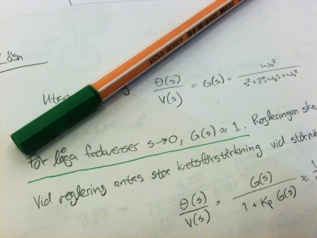 Lösn
Θ(s)/V(s) = G(s) = ω₀²/(s² + 2ζω₀s + ω₀²)
För låga frekvenser s→0, G(s) ≈ 1. Regleringen ska
Vid reglering antas stor kretsförstärkning vid
Θ(s)/V(s) = G(s)/(1 + Kp G(s)) ≈